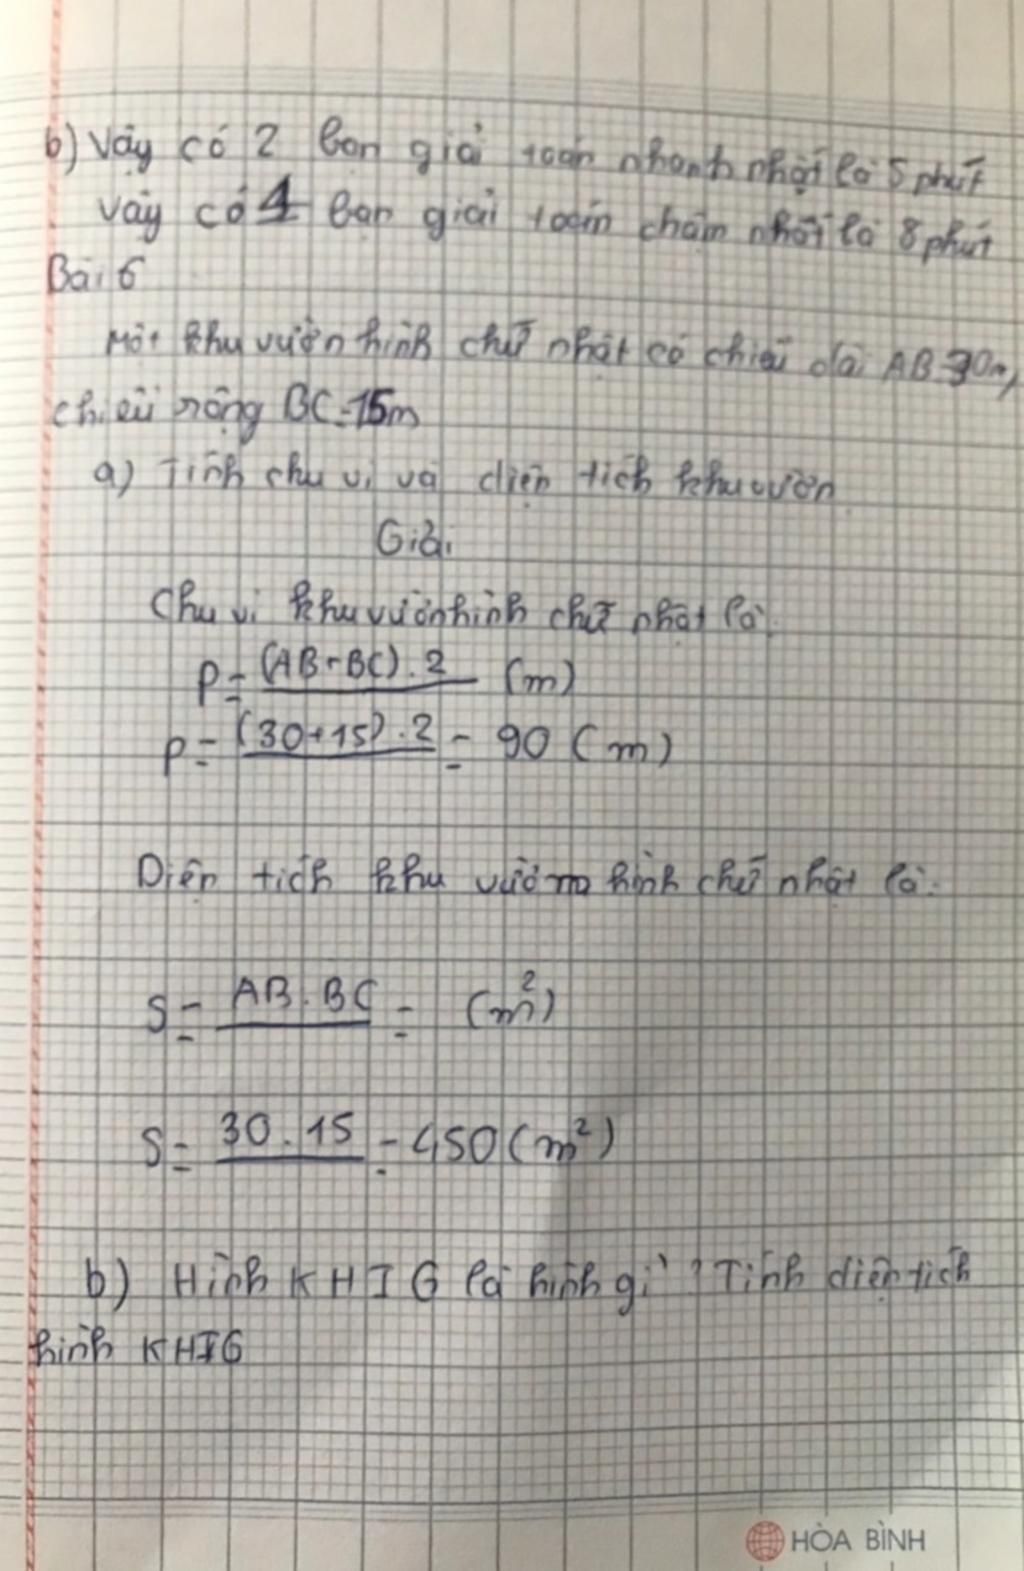 b) Vậy có 2 bạn giải toán nhanh nhất là 5 phút
Vậy có 1 bạn giải toán chậm nhất là 8 phút
Bài 6
Một khu vườn hình chữ nhật có chiều dài AB=30m,
chiều rộng BC=15m
a) Tính chu vi và diện tích khu vườn
Giải
Chu vi khu vườn hình chữ nhật là:
P = (AB+BC).2 (m)
P = (30+15).2 = 90 (m)
Diện tích khu vườn hình chữ nhật là:
S = AB.BC = (m²)
S = 30.15 = 450 (m²)
b) Hình KHIG là hình gì? Tính diện tích
hình KHIG
HÒA BÌNH